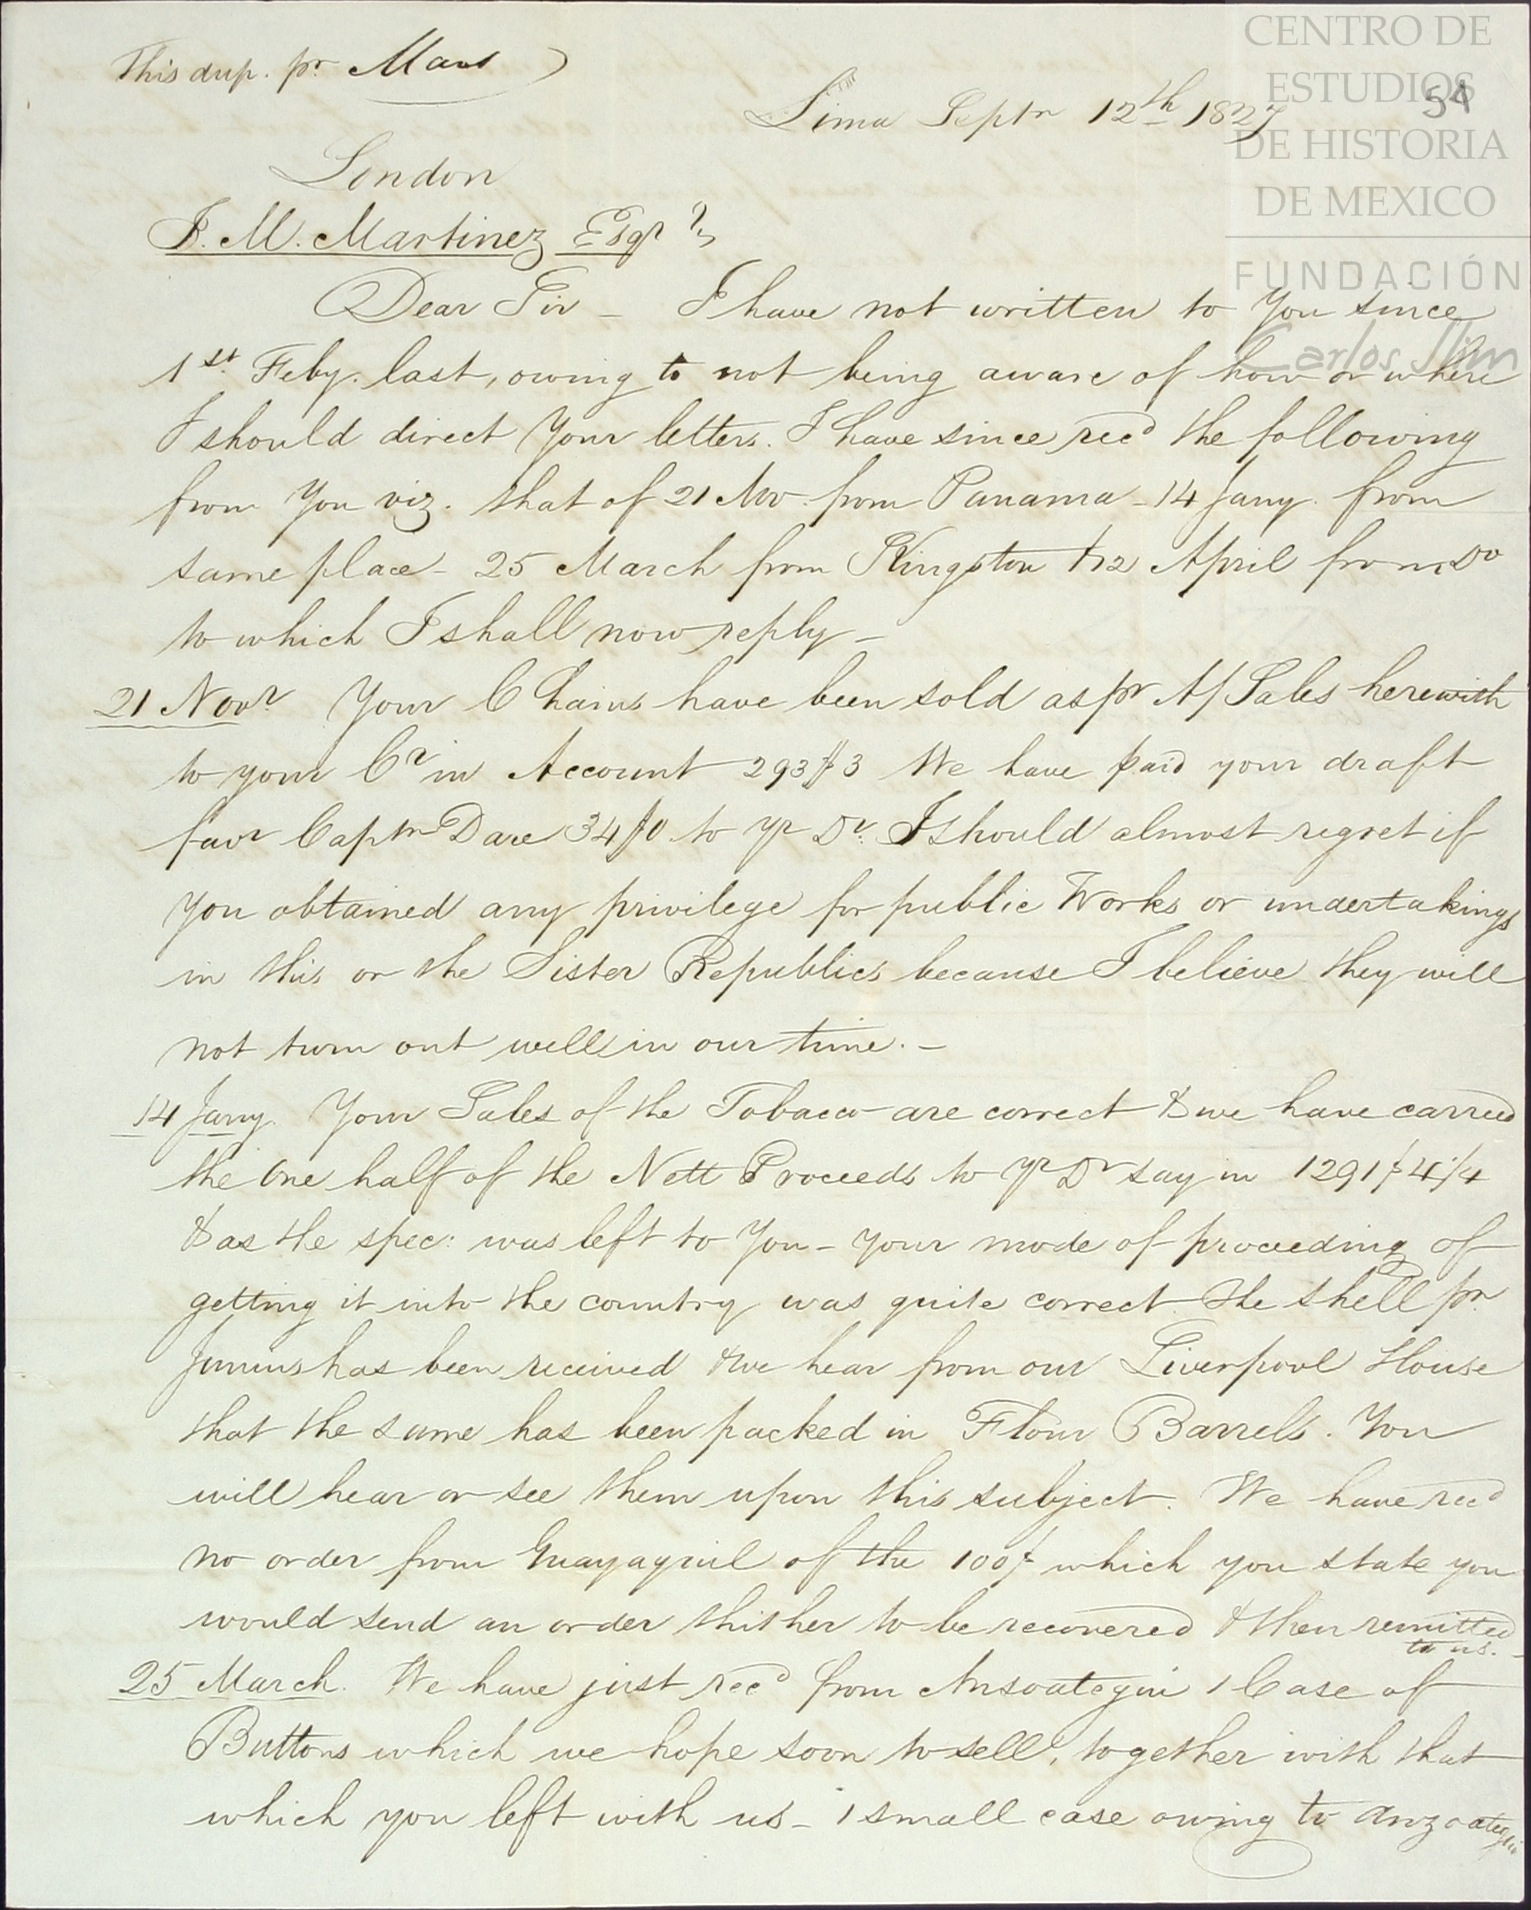 This dup. pr Mars
CENTRO DE
ESTUDIOS
54
DE HISTORIA
DE MEXICO
FUNDACIÓN
Carlos Slim
Lima Septr 12th 1827
London
J. M. Martinez Esqr
Dear Sir - I have not written to You since
1st Feby. last, owing to not being aware of how or where
I should direct Your letters. I have since recd the following
from You viz. that of 21 Nov from Panama - 14 Jany. from
same place - 25 March from Kingston & 12 April from Do
to which I shall now reply -
21 Novr Your Chains have been sold as pr A/Sales herewith
to your Cr in Account 293$3 We have paid your draft
favr Captn Dave 34$0 to yr Dr. I should almost regret if
You obtained any privilege for public Works or undertakings
in this or the Sister Republics because I believe they will
not turn out well in our time. -
14 Jany. Your Sales of the Tobacco are correct & we have carried
the One half of the Nett Proceeds to yr Dr say in 1291$4¼
& as the spec: was left to You - your mode of proceeding of
getting it into the country was quite correct. The shell pr
Junius has been received & we hear from our Liverpool House
that the same has been packed in Flour Barrels. You
will hear or see them upon this subject. We have recd
no order from Guayaquil of the 100$ which you state you
would send an order thither to be recovered & then remitted
to us. -
25 March. We have just recd from Ansoategui 1 Case of
Buttons which we hope soon to sell, together with that
which you left with us - 1 small case owing to Anzoategui